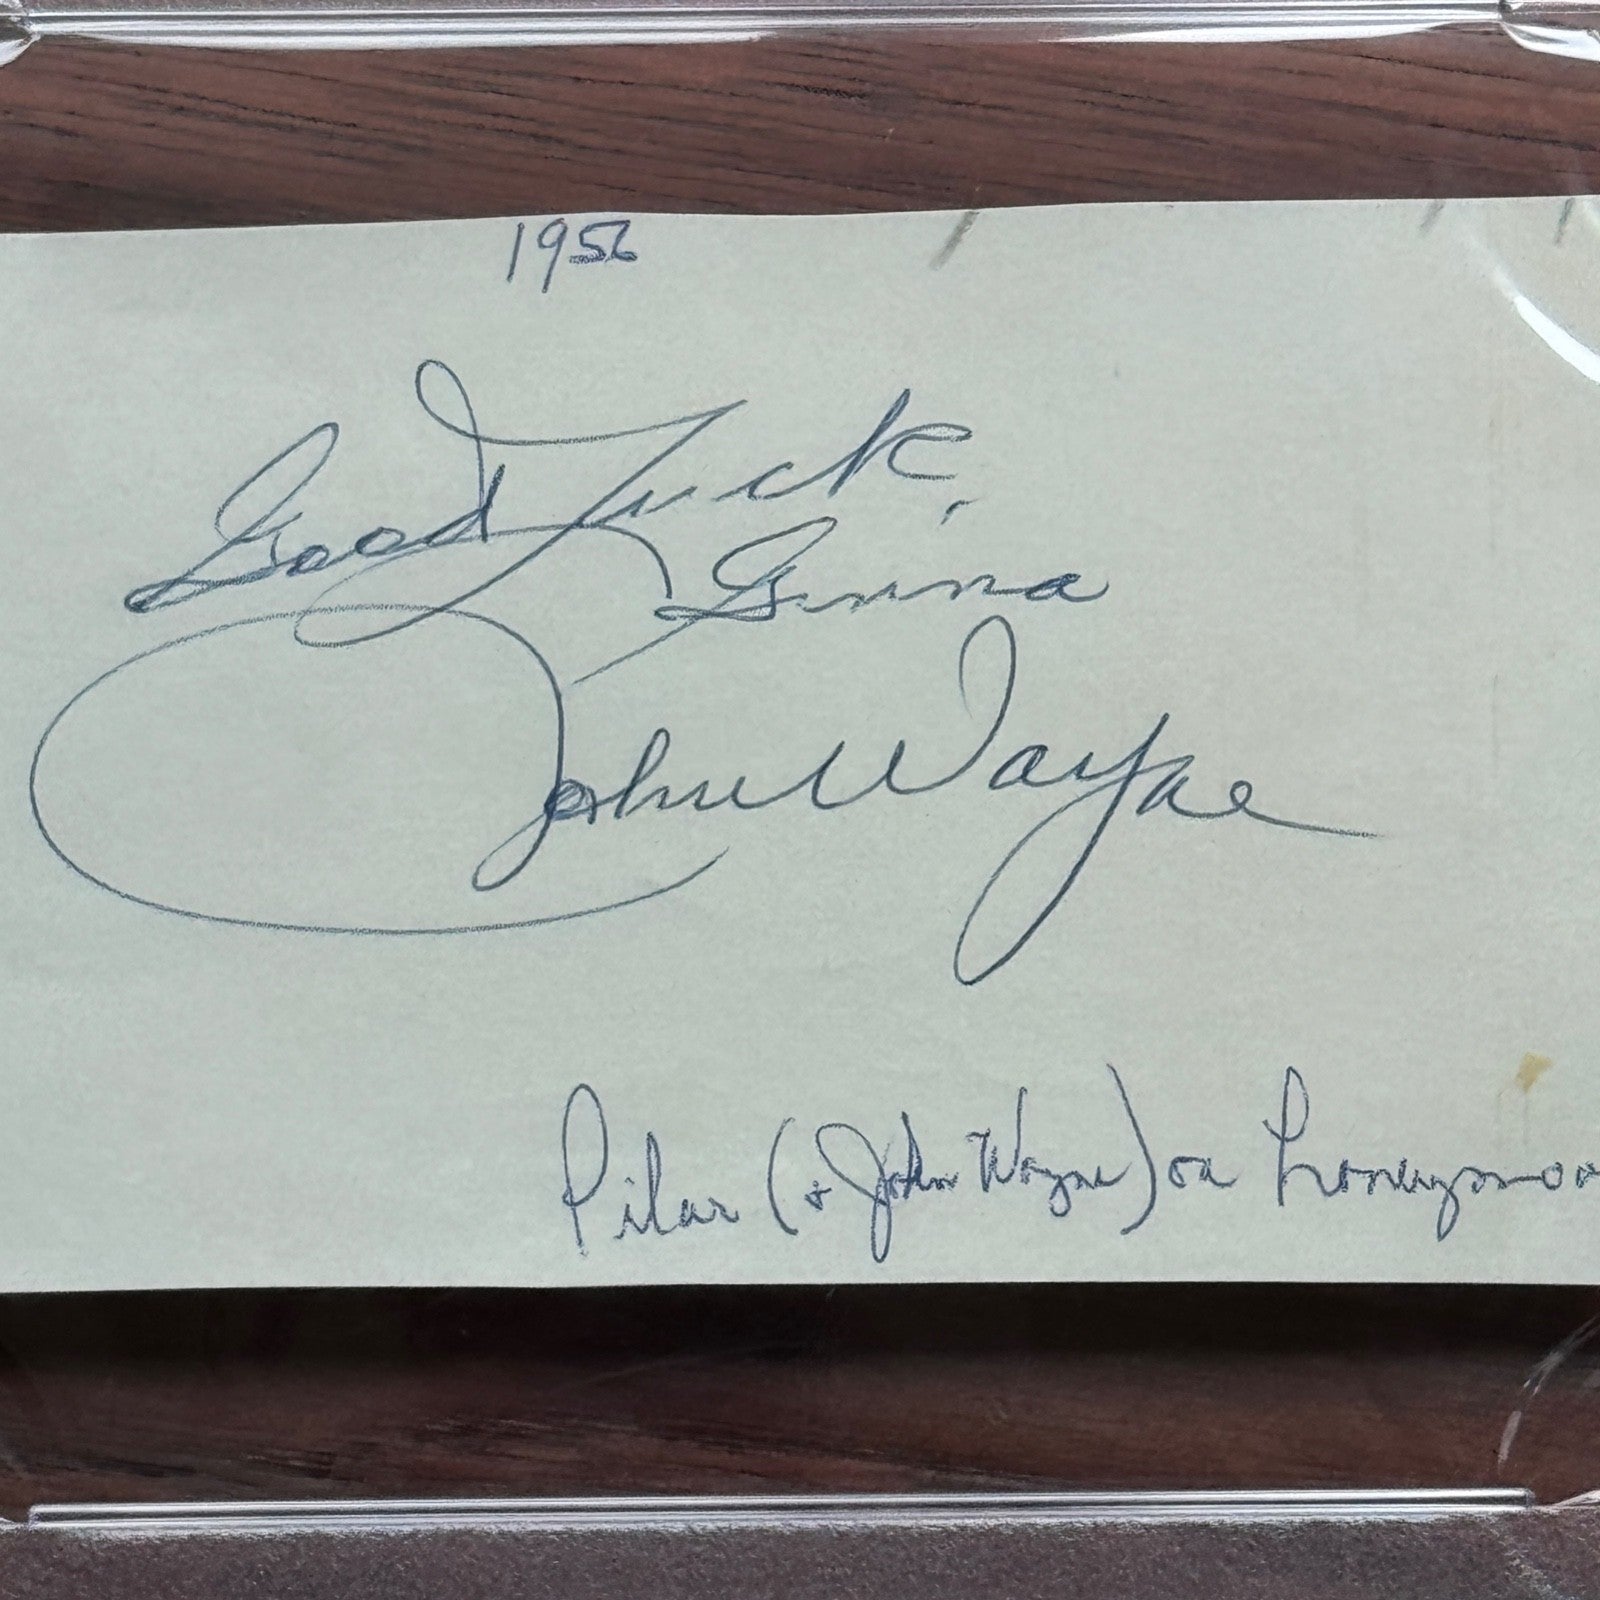 1956
Good Luck,
Ginna
John Wayne
Pilar (& John Wayne) on honeymoon